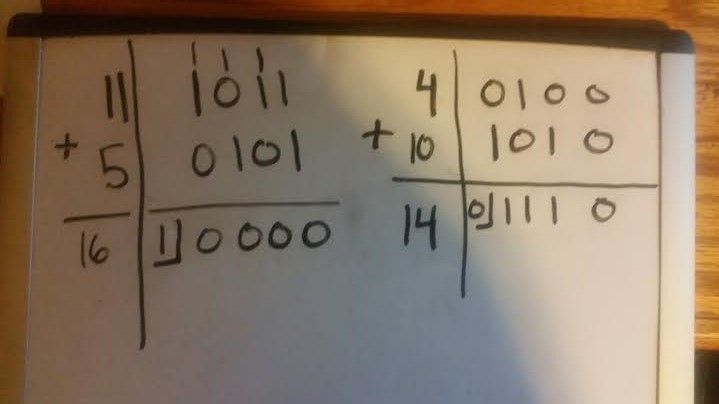 1 1 1
11 1011
+ 5 0101
16 1 0000
4 0100
+ 10 1010
14 0 1110